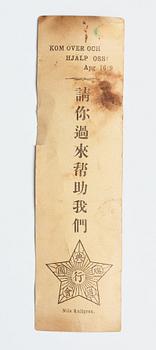 KOM ÖVER OCH
HJÄLP OSS!
Apg 16:9
請你過來帮助我們
行
Nils Kullgren.